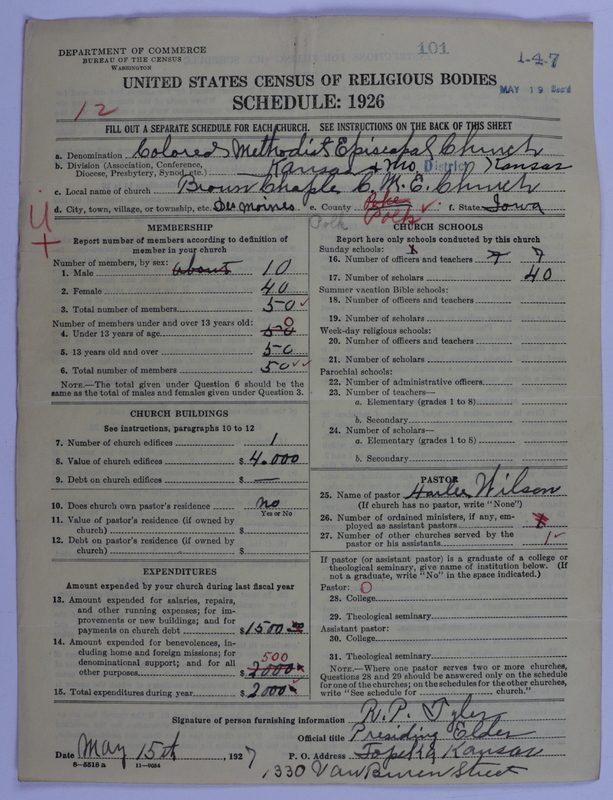 DEPARTMENT OF COMMERCE
BUREAU OF THE CENSUS
WASHINGTON
101
1-4-7
UNITED STATES CENSUS OF RELIGIOUS BODIES
MAY 19 Rec'd
SCHEDULE: 1926
12
FILL OUT A SEPARATE SCHEDULE FOR EACH CHURCH. SEE INSTRUCTIONS ON THE BACK OF THIS SHEET
a. Denomination Colored Methodist Episcopal Church
b. Division (Association, Conference, Diocese, Presbytery, Synod, etc.) Kansas & Mo District Kansas
c. Local name of church Brown Chaple C. M. E. Church
d. City, town, village, or township, etc. Des Moines e. County Polk f. State Iowa
Polk
U
+
MEMBERSHIP
Report number of members according to definition of
member in your church
Number of members, by sex:
1. Male about 10
2. Female 40
3. Total number of members 50
Number of members under and over 13 years old:
4. Under 13 years of age 50 0
5. 13 years old and over 50
6. Total number of members 50
NOTE.—The total given under Question 6 should be
same as the total of males and females given under Question 3.
CHURCH BUILDINGS
See instructions, paragraphs 10 to 12
7. Number of church edifices 1
8. Value of church edifices $ 4.000
9. Debt on church edifices $ —
10. Does church own pastor's residence no
Yes or No
11. Value of pastor's residence (if owned by
church) $
12. Debt on pastor's residence (if owned by
church) $
EXPENDITURES
Amount expended by your church during last fiscal year
13. Amount expended for salaries, repairs,
and other running expenses; for im-
provements or new buildings; and for
payments on church debt $ 1500
14. Amount expended for benevolences, in-
cluding home and foreign missions; for
denominational support; and for all
500
other purposes $ 2000
15. Total expenditures during year $ 2000
CHURCH SCHOOLS
Report here only schools conducted by this church
Sunday schools:
16. Number of officers and teachers 7 7
17. Number of scholars 40
Summer vacation Bible schools:
18. Number of officers and teachers
19. Number of scholars
Week-day religious schools:
20. Number of officers and teachers
21. Number of scholars
Parochial schools:
22. Number of administrative officers
23. Number of teachers—
a. Elementary (grades 1 to 8)
b. Secondary
24. Number of scholars—
a. Elementary (grades 1 to 8)
b. Secondary
PASTOR
25. Name of pastor Wilson
(If church has no pastor, write "None")
26. Number of ordained ministers, if any, em-
ployed as assistant pastors
27. Number of other churches served by the
pastor or his assistants 1
If pastor (or assistant pastor) is a graduate of a college or
theological seminary, give name of institution below. (If
not a graduate, write "No" in the space indicated.)
Pastor: 0
28. College
29. Theological seminary
Assistant pastor:
30. College
31. Theological seminary
NOTE.—Where one pastor serves two or more churches,
Questions 28 and 29 should be answered only on the schedule
for one of the churches; on the schedules for the other churches,
write "See schedule for church."
Signature of person furnishing information R. P. Tyler
Official title Presiding Elder
Date May 15th, 1927 P. O. Address Topeka Kansas
8—5518 a 11—9054
1330 Van Buren Street